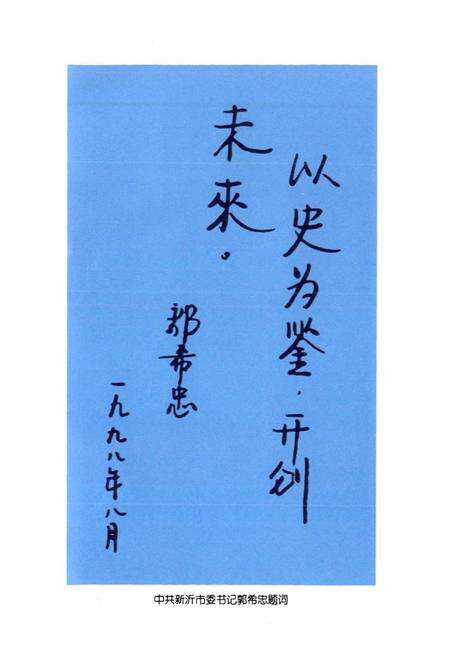 以史为鉴．开创
未來。
郭希忠
一九九八年八月
中共新沂市委书记郭希忠题词